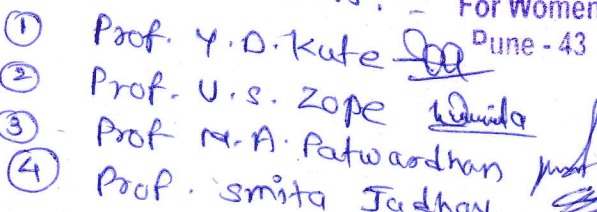 For Women
① Prof. Y.D. Kute Pune - 43
② Prof. U.S. Zope
③ Prof M.A. Patwardhan
④ Prof. Smita Jadhav